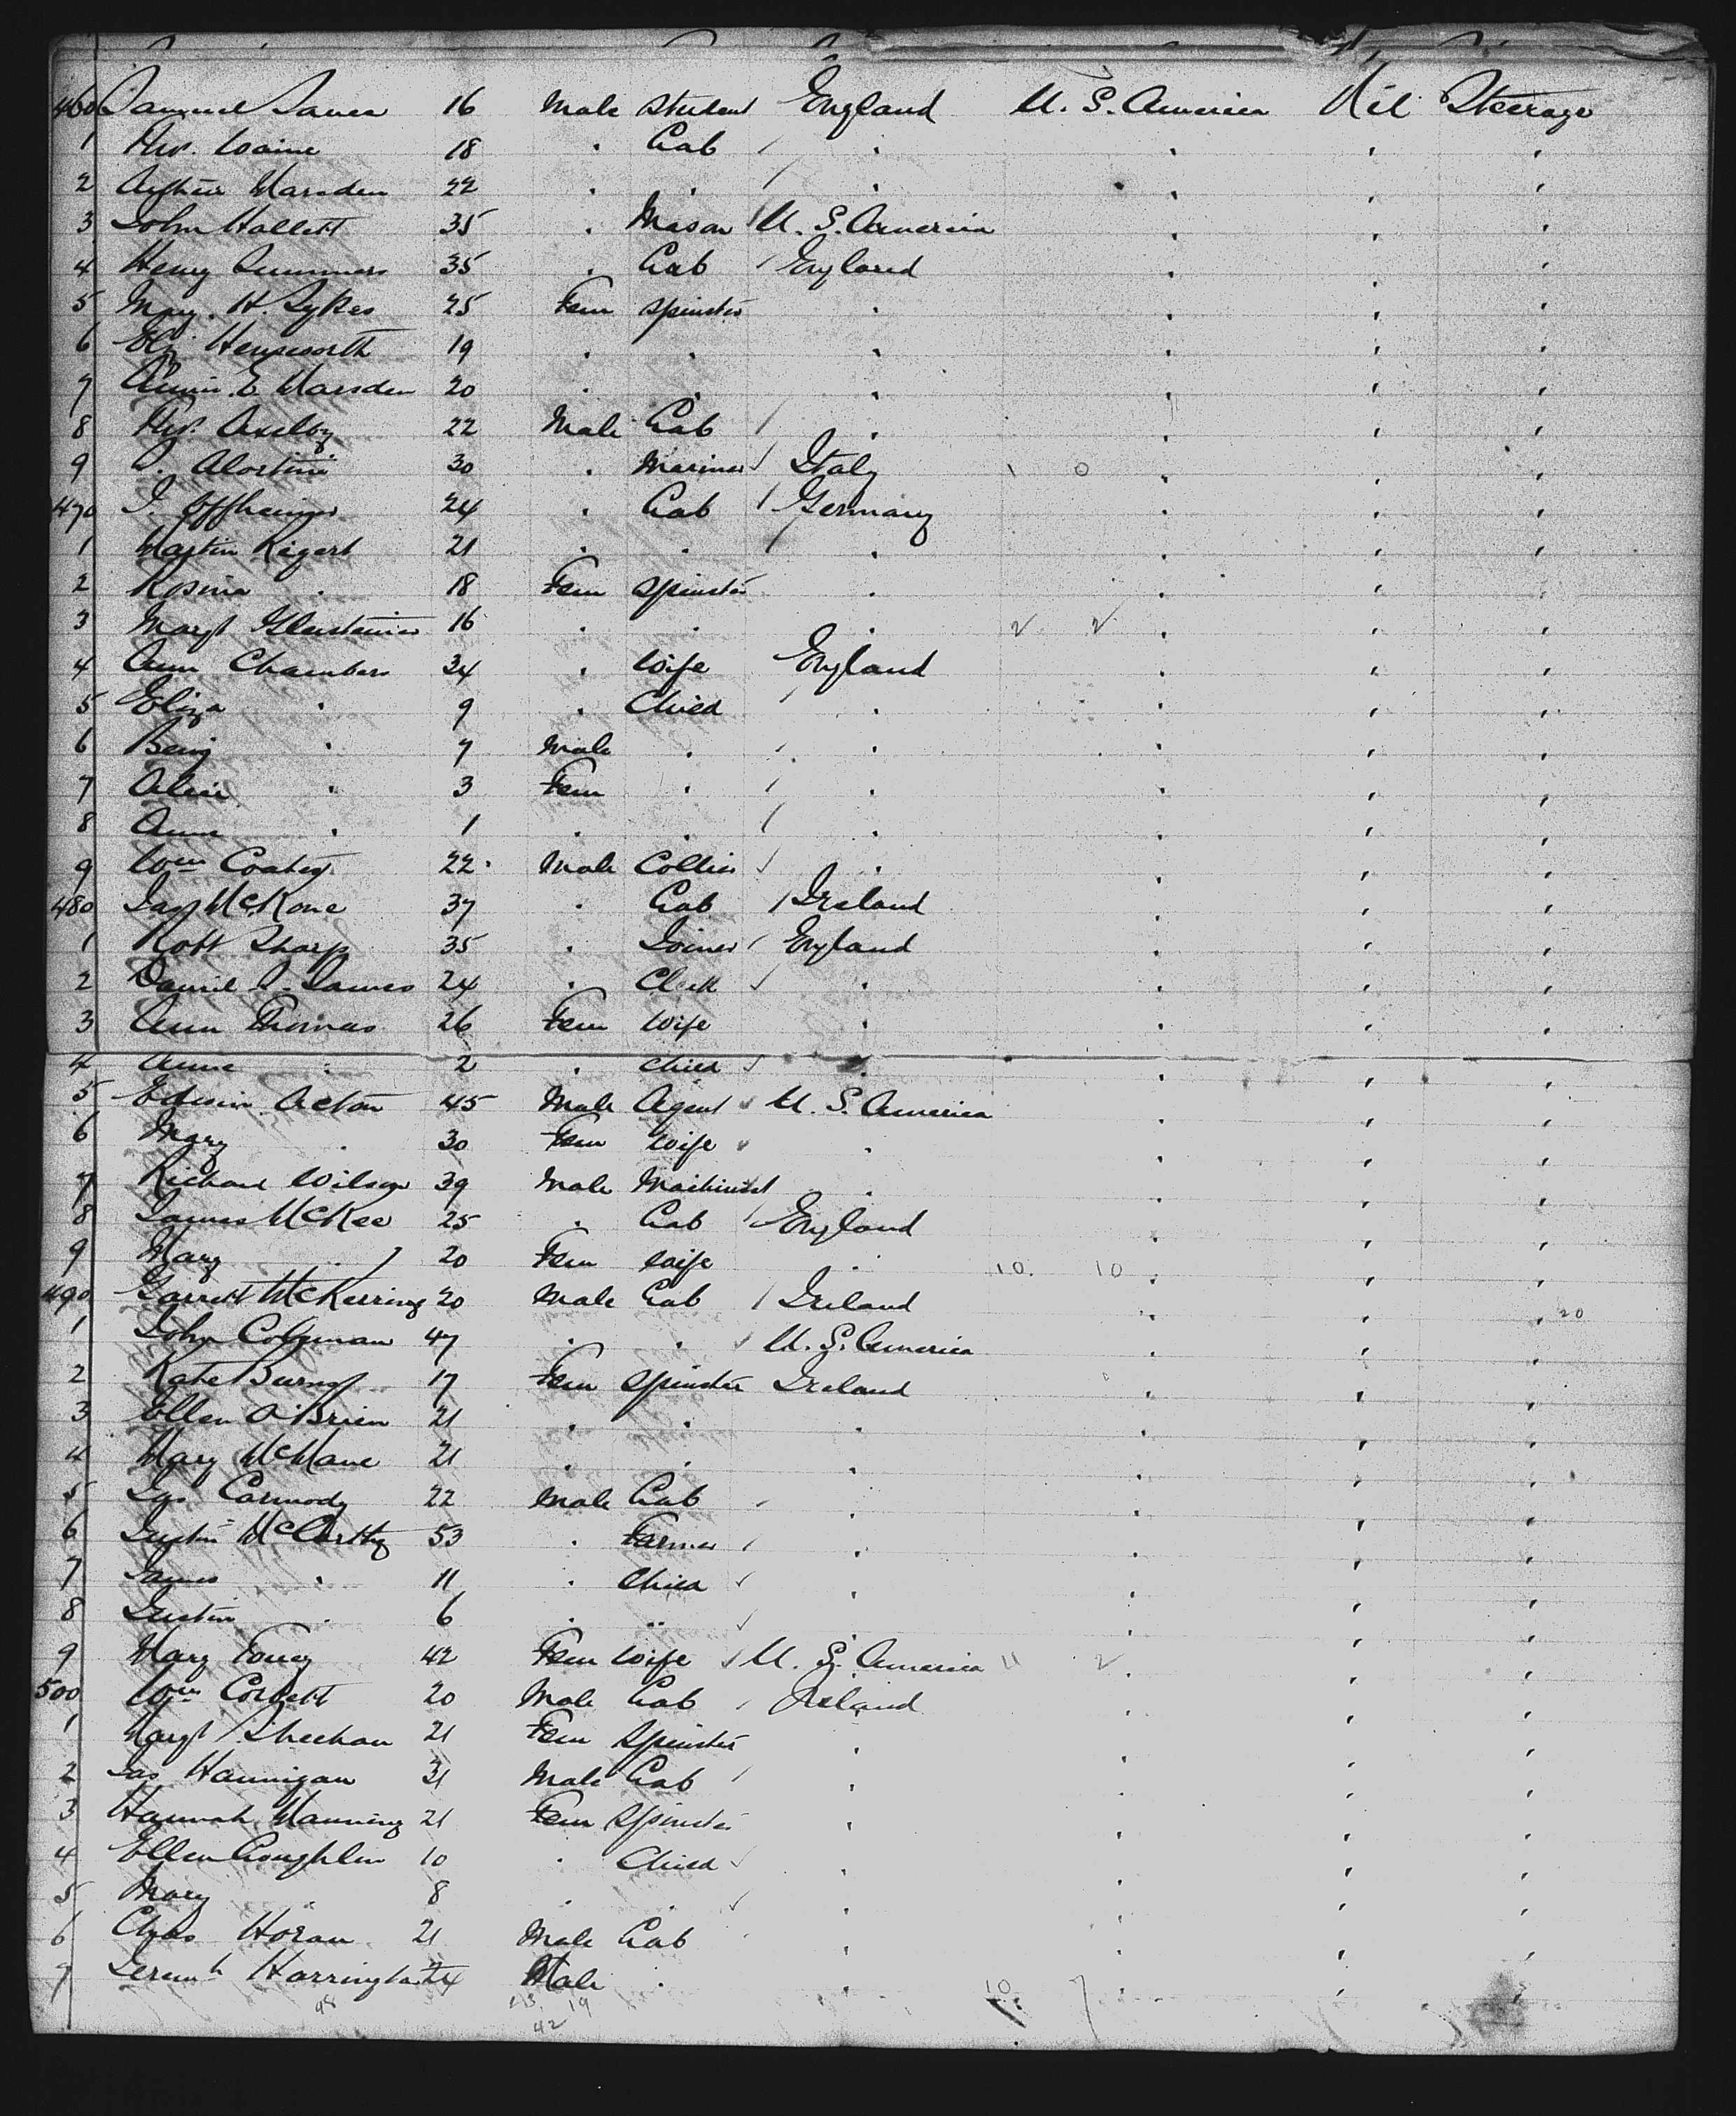 460 Samuel James 16 Male Student England U. S. America Nil Steerage
1 18 " Lab / " " " "
2 Arthur Marsden 22 " " / " " " "
3 John Hallett 35 " Mason / U. S. America " " "
4 Henry Summers 35 " Lab / England " " "
5 Mary. H. Sykes 25 Fem Spinster " " " "
6 Eliz. 19 " " " " " "
7 Annie. E Marsden 20 " " " " " "
8 Axelby 22 Male Lab / " " " "
9 30 " Mariner √ Italy 1 0 " " "
470 24 " Lab / Germany " " "
1 Martin Rigert 21 " " / " " " "
2 Rosina " 18 Fem Spinster " " " "
3 Margt 16 " " " 2 2 " " "
4 Ann Chambers 34 " Wife England " " "
5 Eliza " 9 " Child / " " " "
6 Benj " 7 Male " / " " " "
7 Alice " 3 Fem " / " " " "
8 Ann " 1 " " / " " " "
9 Wm Coates 22 Male Collier √ " " " "
480 Jas McKone 37 " Lab / Ireland " " "
1 Robt Sharp 35 " Joiner / England " " "
2 Daniel James 24 " Clerk √ " " " "
3 Ann Thomas 26 Fem Wife " " " "
4 Anne " 2 " Child √ " " " "
5 Edwin Acton 45 Male Agent √ U. S. America " " "
6 Mary " 30 Fem Wife √ " " " "
7 Richard Wilson 39 Male Machinist " " " "
8 James McKee 25 " Lab / England " " "
9 Mary " 20 Fem Wife " 10 10 " " "
490 Garrett McKerring 20 Male Lab / Ireland " " " 20
1 John Coleman 47 " " √ U. S. America " " "
2 Kate Burns 17 Fem Spinster Ireland " " "
3 Ellen O'Brien 21 " " " " " "
4 Mary 21 " " " " " "
5 Jas Carmody 22 Male Lab / " " " "
6 Justin McCarthy 53 " Farmer / " " " "
7 James " 11 " Child √ " " " "
8 Justin " 6 " " √ " " " "
9 Mary 42 Fem Wife √ U. S. America 11 2 " " "
500 Wm Corbett 20 Male Lab / Ireland " " "
1 Margt Sheehan 21 Fem Spinster " " " "
2 Jas Hannigan 31 Male Lab / " " " "
3 Hannah Manning 21 Fem Spinster " " " "
4 Ellen Coughlin 10 " Child √ " " " "
5 Mary " 8 " " √ " " " "
6 Chas Horan 21 Male Lab " " " "
7 Jeremh Harrington 24 Male " " 10 7 " " "
98 19
42